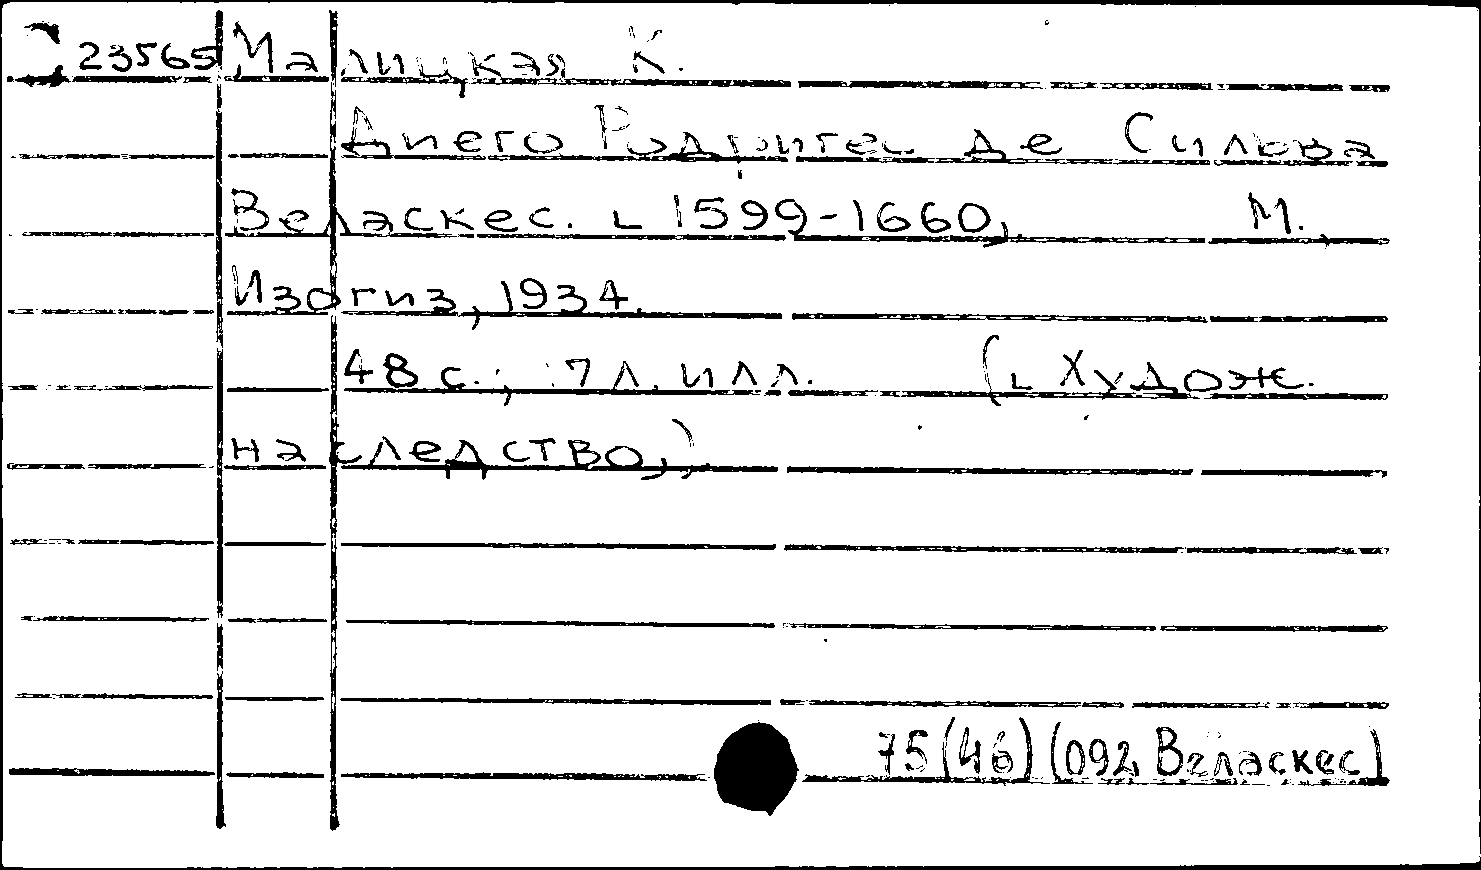 23565 Малицкая К.
Диего Родригес де Сильва
Веласкес. 1599-1660. М.,
Изогиз, 1934.
48 с.; 7 л. илл. (Худож.
наследство)
75(46)(092 Веласкес)